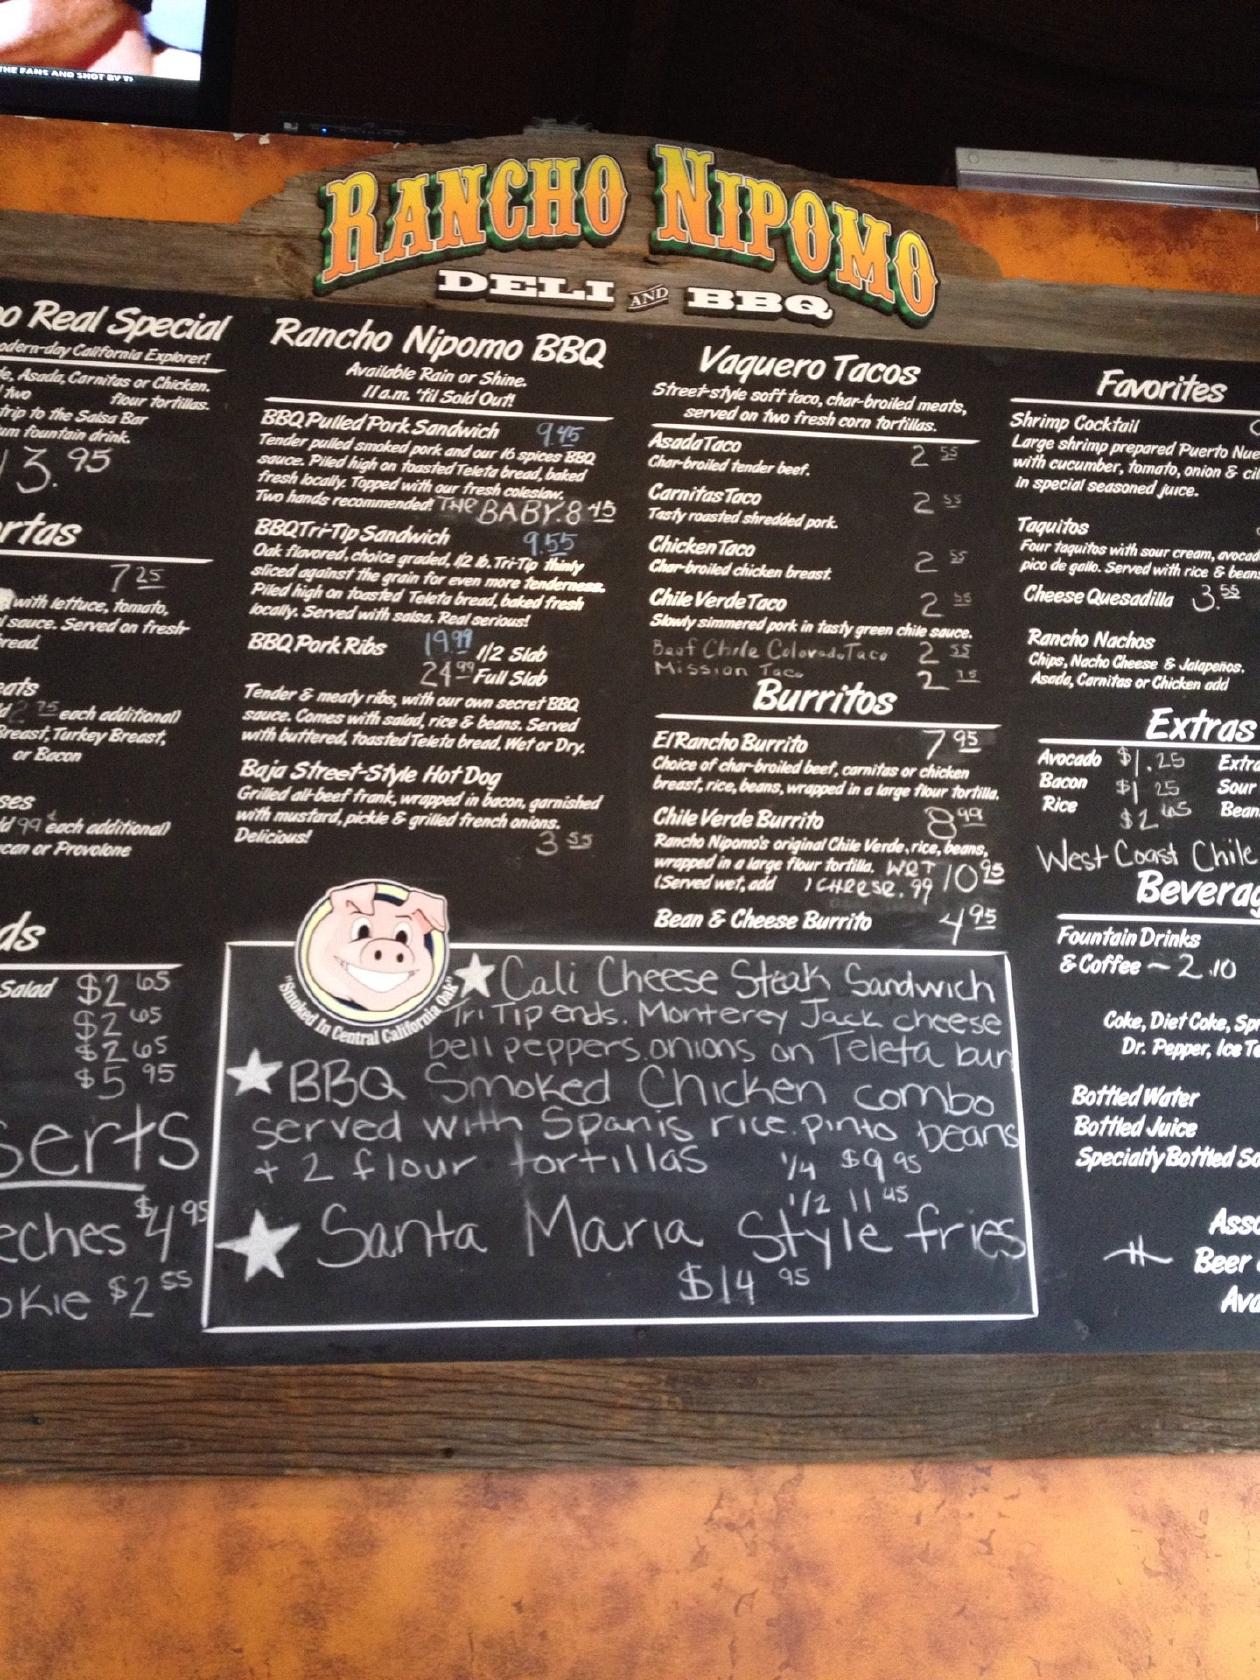 THE FANS AND SHOT BY
RANCHO NIPOMO
DELI AND BBQ
Real Special
California Explorer!
Asada, Carnitas or Chicken.
two flour tortillas.
trip to the Salsa Bar
fountain drink.
3.95
7 25
with lettuce, tomato,
sauce. Served on fresh-
2 75 each additional)
Breast, Turkey Breast,
or Bacon
99¢ each additional)
or Provolone
Salad $2 65
$2 65
$2 65
$5 95
$4 95
$2 55
Rancho Nipomo BBQ
Available Rain or Shine.
11 a.m. 'til Sold Out!
BBQ Pulled Pork Sandwich 9.45
Tender pulled smoked pork and our 16 spices BBQ
sauce. Piled high on toasted Teleta bread, baked
fresh locally. Topped with our fresh coleslaw.
Two hands recommended! THE BABY. 8 45
BBQ Tri-Tip Sandwich 9.55
Oak flavored, choice graded, 1/2 lb. Tri-Tip thinly
sliced against the grain for even more tenderness.
Piled high on toasted Teleta bread, baked fresh
locally. Served with salsa. Real serious!
BBQ Pork Ribs 19.99 1/2 Slab
24 99 Full Slab
Tender & meaty ribs, with our own secret BBQ
sauce. Comes with salad, rice & beans. Served
with buttered, toasted Teleta bread, Wet or Dry.
Baja Street-Style Hot Dog
Grilled all-beef frank, wrapped in bacon, garnished
with mustard, pickle & grilled french onions.
Delicious! 3 55
Vaquero Tacos
Street-style soft taco, char-broiled meats,
served on two fresh corn tortillas.
Asada Taco 2 55
Char-broiled tender beef.
Carnitas Taco 2 55
Tasty roasted shredded pork.
Chicken Taco 2 55
Char-broiled chicken breast.
Chile Verde Taco 2 55
Slowly simmered pork in tasty green chile sauce.
Beef Chile Colorado Taco 2 55
Mission Taco 2
Burritos
El Rancho Burrito 7 95
Choice of char-broiled beef, carnitas or chicken
breast, rice, beans, wrapped in a large flour tortilla.
Chile Verde Burrito 8 99
Rancho Nipomo's original Chile Verde, rice, beans,
wrapped in a large flour tortilla. WET 10 95
(Served wet, add ) CHEESE .99
Bean & Cheese Burrito 4 95
Favorites
Shrimp Cocktail
Large shrimp prepared Puerto
with cucumber, tomato, onion &
in special seasoned juice.
Taquitos
Four taquitos with sour cream,
pico de gallo. Served with rice &
Cheese Quesadilla 3.55
Rancho Nachos
Chips, Nacho Cheese & Jalapeños.
Asada, Carnitas or Chicken add
Extras
Avocado $1.25
Bacon $1 25 Sour
Rice $2 65
West Coast Chile
Fountain Drinks
& Coffee ~ 2.10
Coke, Diet Coke,
Dr. Pepper, Ice
Bottled Water
Bottled Juice
Specialty Bottled
Beer
"Smoked In Central California Oak"
★ Cali Cheese Steak Sandwich
Tri Tip ends. Monterey Jack cheese
bell peppers. onions on Teleta bun
★ BBQ Smoked Chicken combo
served with Spanis rice. pinto beans
+ 2 flour tortillas 1/4 $9 95
1/2 11 45
★ Santa Maria Style fries
$14 95